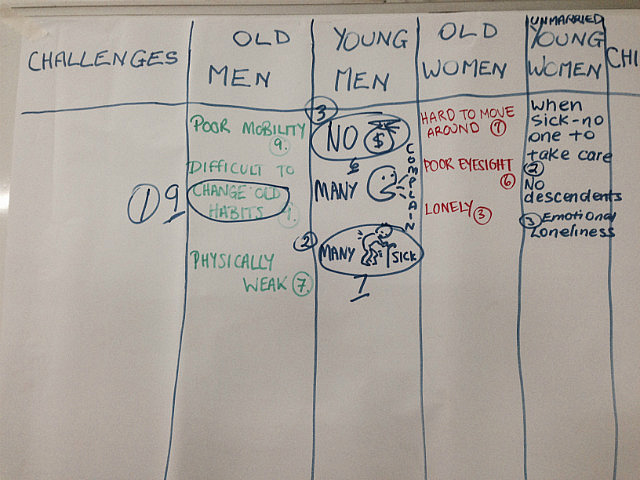 CHALLENGES
OLD
MEN
YOUNG
MEN
OLD
WOMEN
UNMARRIED
YOUNG
WOMEN
CHI
① 9
POOR MOBILITY
9.
DIFFICULT TO
CHANGE OLD
HABITS
PHYSICALLY
WEAK ⑦.
③
NO $
6
MANY
COMPLAIN
②
MANY SICK
7
HARD TO MOVE
AROUND ⑦
POOR EYESIGHT
⑥
LONELY ③
when
sick-no
one to
take care
②
NO
descendents
③ Emotional
Loneliness